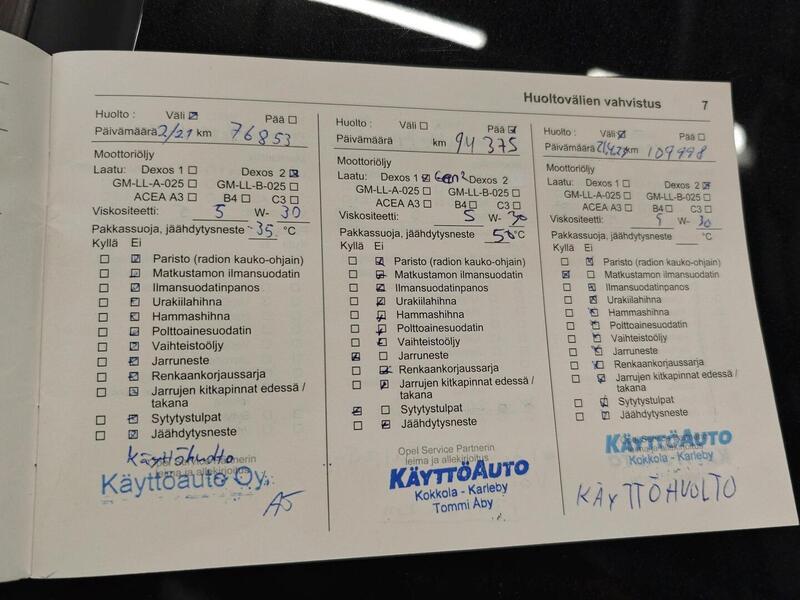 Huoltovälien vahvistus 7
Huolto : Väli ☒ Pää ☐
Päivämäärä 2/21 km 76853
Moottoriöljy
Laatu: Dexos 1 ☐ Dexos 2 ☒
GM-LL-A-025 ☐ GM-LL-B-025 ☐
ACEA A3 ☐ B4 ☐ C3 ☐
Viskositeetti: 5 W- 30
Pakkassuoja, jäähdytysneste -35 °C
Kyllä Ei
☐ ☒ Paristo (radion kauko-ohjain)
☐ ☒ Matkustamon ilmansuodatin
☐ ☒ Ilmansuodatinpanos
☐ ☒ Urakiilahihna
☐ ☒ Hammashihna
☐ ☒ Polttoainesuodatin
☐ ☒ Vaihteistoöljy
☐ ☒ Jarruneste
☐ ☒ Renkaankorjaussarja
☐ ☒ Jarrujen kitkapinnat edessä /
takana
☐ ☒ Sytytystulpat
☐ ☒ Jäähdytysneste
Käyttöhuolto
Opel Service Partnerin
leima ja allekirjoitus
Käyttöauto Oy
Huolto : Väli ☐ Pää ☒
Päivämäärä km 94 375
Moottoriöljy
Laatu: Dexos 1 ☒ Gen2 Dexos 2
GM-LL-A-025 ☐ GM-LL-B-025 ☐
ACEA A3 ☐ B4 ☐ C3 ☐
Viskositeetti: 5 W- 30
Pakkassuoja, jäähdytysneste °C
Kyllä Ei
☐ ☒ Paristo (radion kauko-ohjain)
☐ ☒ Matkustamon ilmansuodatin
☐ ☒ Ilmansuodatinpanos
☐ ☒ Urakiilahihna
☐ ☒ Hammashihna
☐ ☒ Polttoainesuodatin
☐ ☒ Vaihteistoöljy
☒ ☐ Jarruneste
☐ ☒ Renkaankorjaussarja
☐ ☒ Jarrujen kitkapinnat edessä /
takana
☒ ☐ Sytytystulpat
☐ ☒ Jäähdytysneste
Opel Service Partnerin
leima ja allekirjoitus
KÄYTTÖAUTO
Kokkola - Karleby
Tommi Åby
Huolto : Väli ☒ Pää ☐
Päivämäärä km 109998
Moottoriöljy
Laatu: Dexos 1 ☐ Dexos 2 ☒
GM-LL-A-025 ☐ GM-LL-B-025 ☐
ACEA A3 ☐ B4 ☐ C3 ☐
Viskositeetti: 5 W- 30
Pakkassuoja, jäähdytysneste °C
Kyllä Ei
☐ ☒ Paristo (radion kauko-ohjain)
☒ ☐ Matkustamon ilmansuodatin
☐ ☒ Ilmansuodatinpanos
☐ ☒ Urakiilahihna
☐ ☒ Hammashihna
☐ ☒ Polttoainesuodatin
☐ ☒ Vaihteistoöljy
☐ ☒ Jarruneste
☐ ☒ Renkaankorjaussarja
☐ ☒ Jarrujen kitkapinnat edessä /
takana
☐ ☒ Sytytystulpat
☐ ☒ Jäähdytysneste
KÄYTTÖAUTO
Kokkola - Karleby
KÄYTTÖHUOLTO